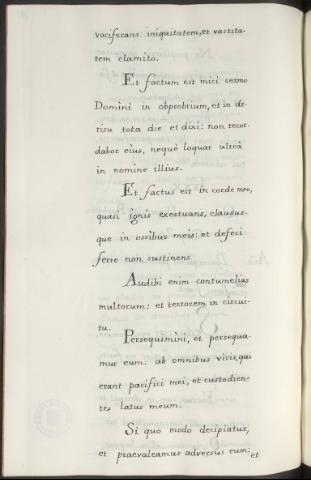 vociferans: iniquitatem, et vastita-
tem clamito.
Et factum est mici sermo
Domini in obprobrium, et in de-
risu tota die et dixi: non recor-
dabor eius, nequè loquar ultrà
in nomine illius.
Et factus est in corde meo,
quasi ignis exestuans, clausus-
que in ossibus meis: et defeci
ferre non sustinens.
Audibi enim contumelias
multorum: et terrorem in circui-
tu.
Persequimini, et persequa-
mur eum: ab omnibus viris, qui
erant pacifici mei, et custodien-
tes latus meum.
Si quo modo decipiatur,
et praevaleamus adversus eum:
et